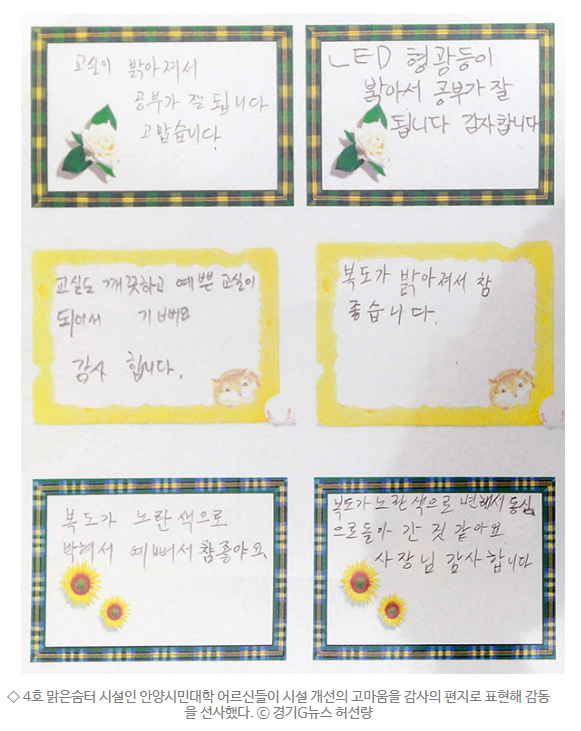 교실이 밝아져서
공부가 잘 됩니다
고맙습니다.
LED 형광등이
밝아서 공부가 잘
됩니다 감사합니다
교실도 깨끗하고 예쁜 교실이
되어서 기뻐요
감사 합니다.
복도가 밝아져서 참
좋습니다.
복도가 노란색으로
예뻐서 참좋아요
복도가 노란색으로 변해서 동심
으로돌아 간 것 같아요
사장님 감사합니다
◇ 4호 맑은숨터 시설인 안양시민대학 어르신들이 시설 개선의 고마움을 감사의 편지로 표현해 감동
을 선사했다. ⓒ 경기G뉴스 허선량